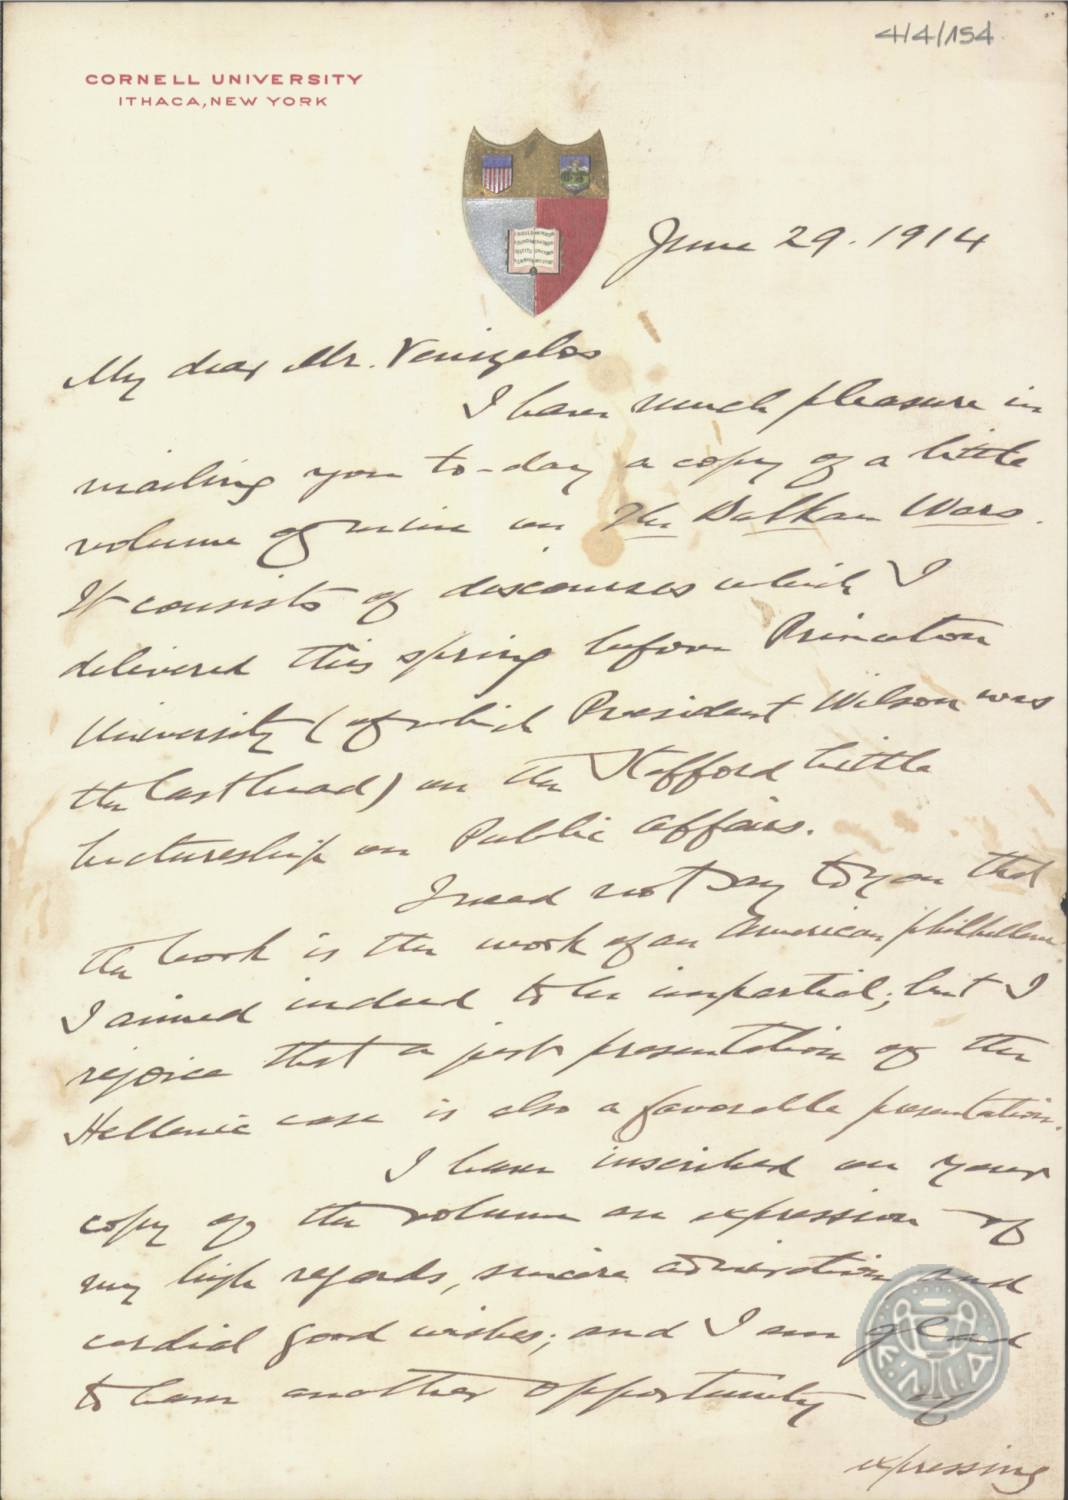 4/4/154
CORNELL UNIVERSITY
ITHACA, NEW YORK
June 29. 1914
My dear Mr. Venizelos
I have much pleasure in
mailing you to-day a copy of a little
volume of mine on The Balkan Wars.
It consists of discourses which I
delivered this spring before Princeton
University (of which President Wilson was
the last head) on the Stafford Little
lectureship on Public Affairs.
I need not say to you that
the book is the work of an American philhellene
I aimed indeed to be impartial; but I
rejoice that a just presentation of the
Hellenic case is also a favorable presentation.
I have inscribed on your
copy of the volume an expression of
my high regards, sincere admiration and
cordial good wishes; and I am glad
to have another opportunity of
expressing